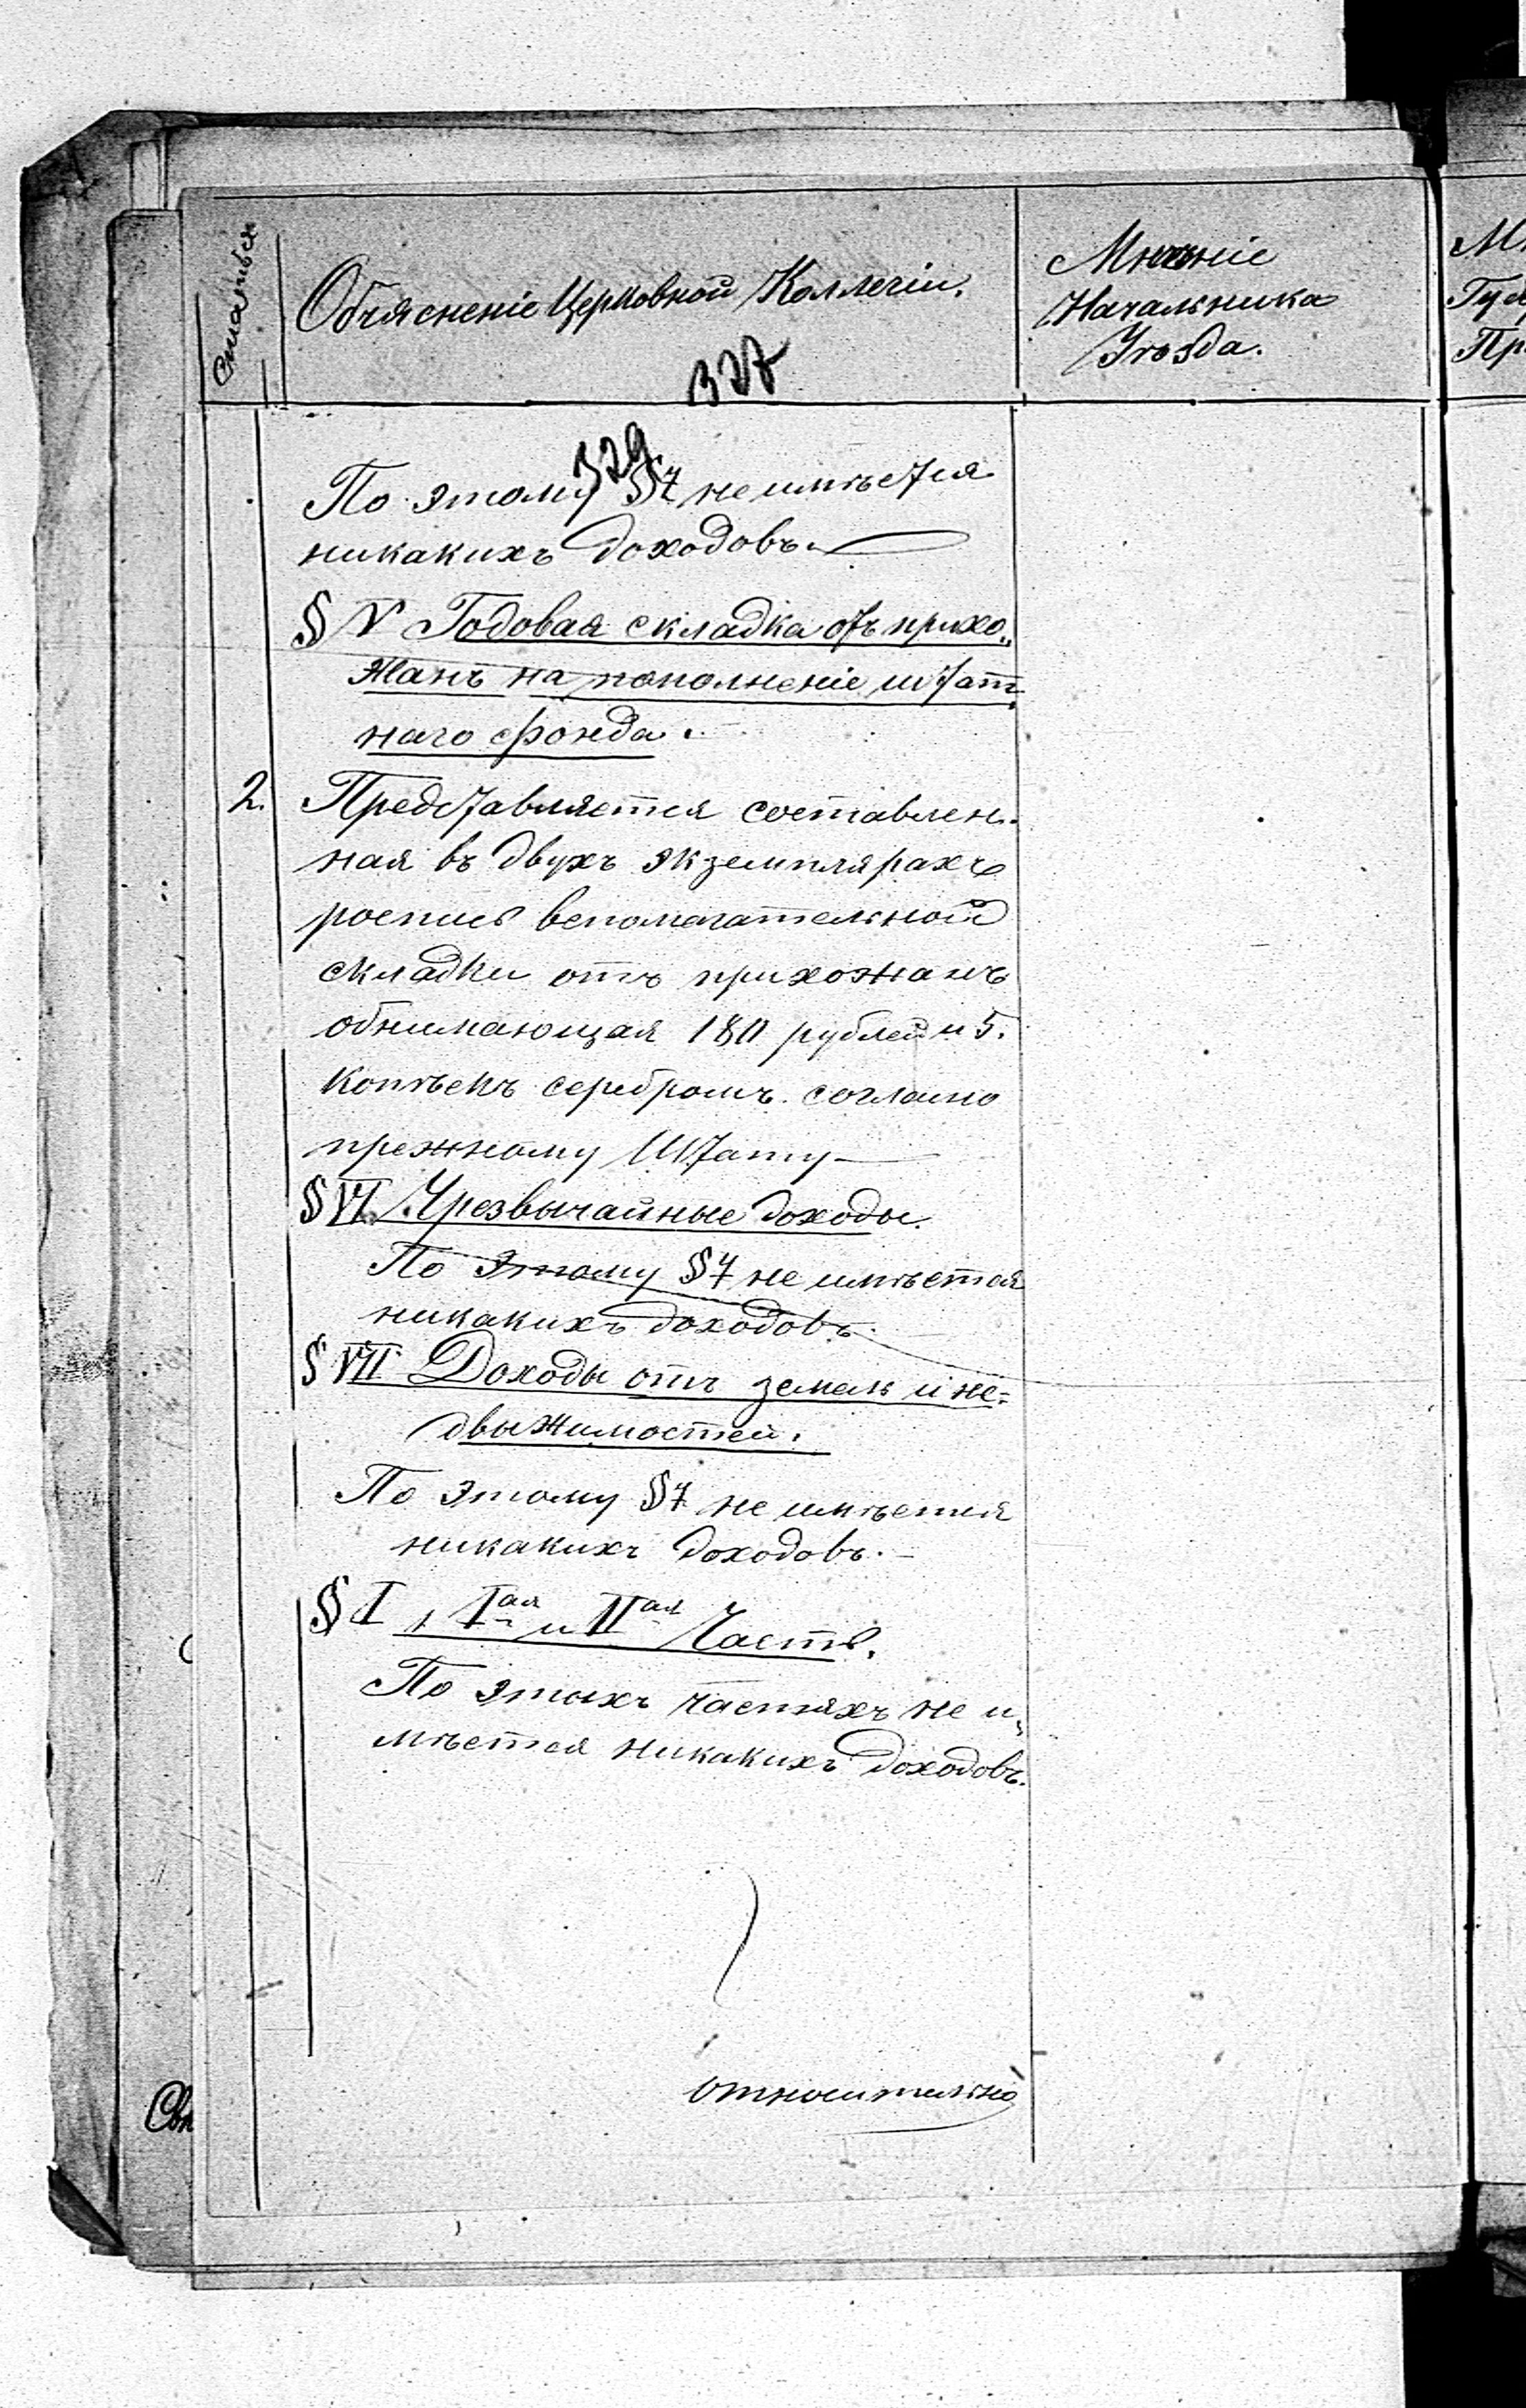 Статья
Объясненіе Церковной Коллегіи.
Мнѣніе
Начальника
Уѣзда.
327
329
По этому §у не имѣется
никакихъ доходовъ.—
§ V Годовая складка отъ прихо„
жанъ на пополненіе штат„
наго фонда.
2. Представляется составлен„
ная въ двухъ экземплярахъ
роспись вспомагательной
складки отъ прихожанъ
обнимающая 180 рублей и 5.
копѣекъ серебромъ. согласно
прежному Штату—
§ VI. Чрезвычайные доходы.
По этому §у не имѣется
никакихъ доходовъ.
§ VII Доходы отъ земель и не=
движимостей.
По этому §у не имѣется
никакихъ доходовъ.—
§ I, Iая и IIая Часть.
По этыхъ частяхъ не и„
мѣется никакихъ доходовъ.
относительно